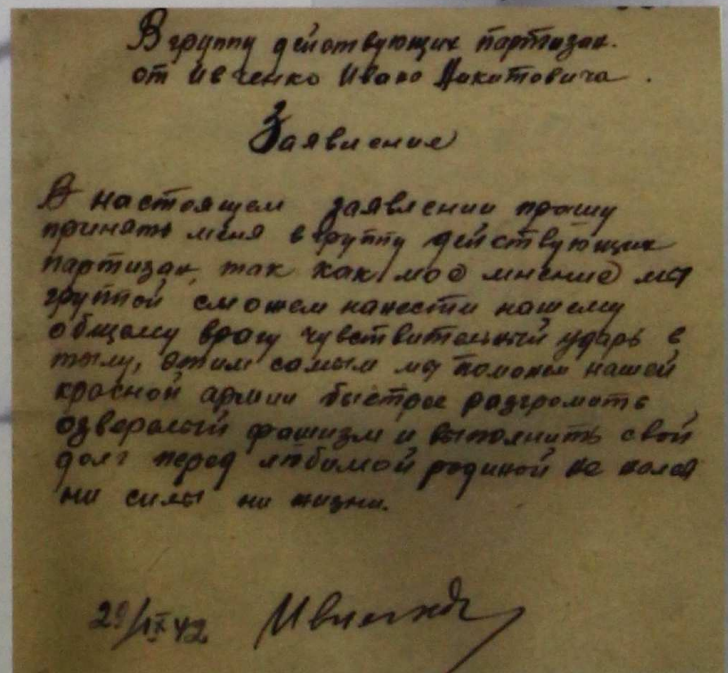 В группу действующих партизан.
от Ивченко Ивана Никитовича.
Заявление
В настоящем заявлении прошу
принять меня в группу действующих
партизан, так как мое мнение мы
группой сможем нанести нашему
общему врагу чувствительный ударь в
тылу, этим самым мы поможем нашей
красной армии быстрее разгромить
озверелый фашизм и выполнить свой
долг перед любимой родиной не жалея
ни силы ни жизни.
29/IX 42 Ивченко